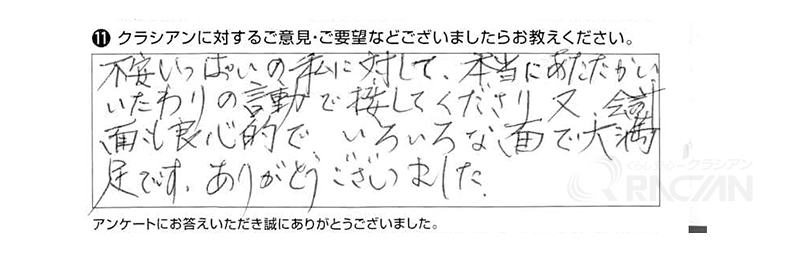 ⓫ クラシアンに対するご意見・ご要望などございましたらお教えください。
不安いっぱいの私に対して、本当にあたたかい
いたわりの言動で接してくださり 又、会計
面も良心的で、いろいろな面で大満
足です。ありがとうございました。
くらし安心クラシアン
QRACIAN
アンケートにお答えいただき誠にありがとうございました。